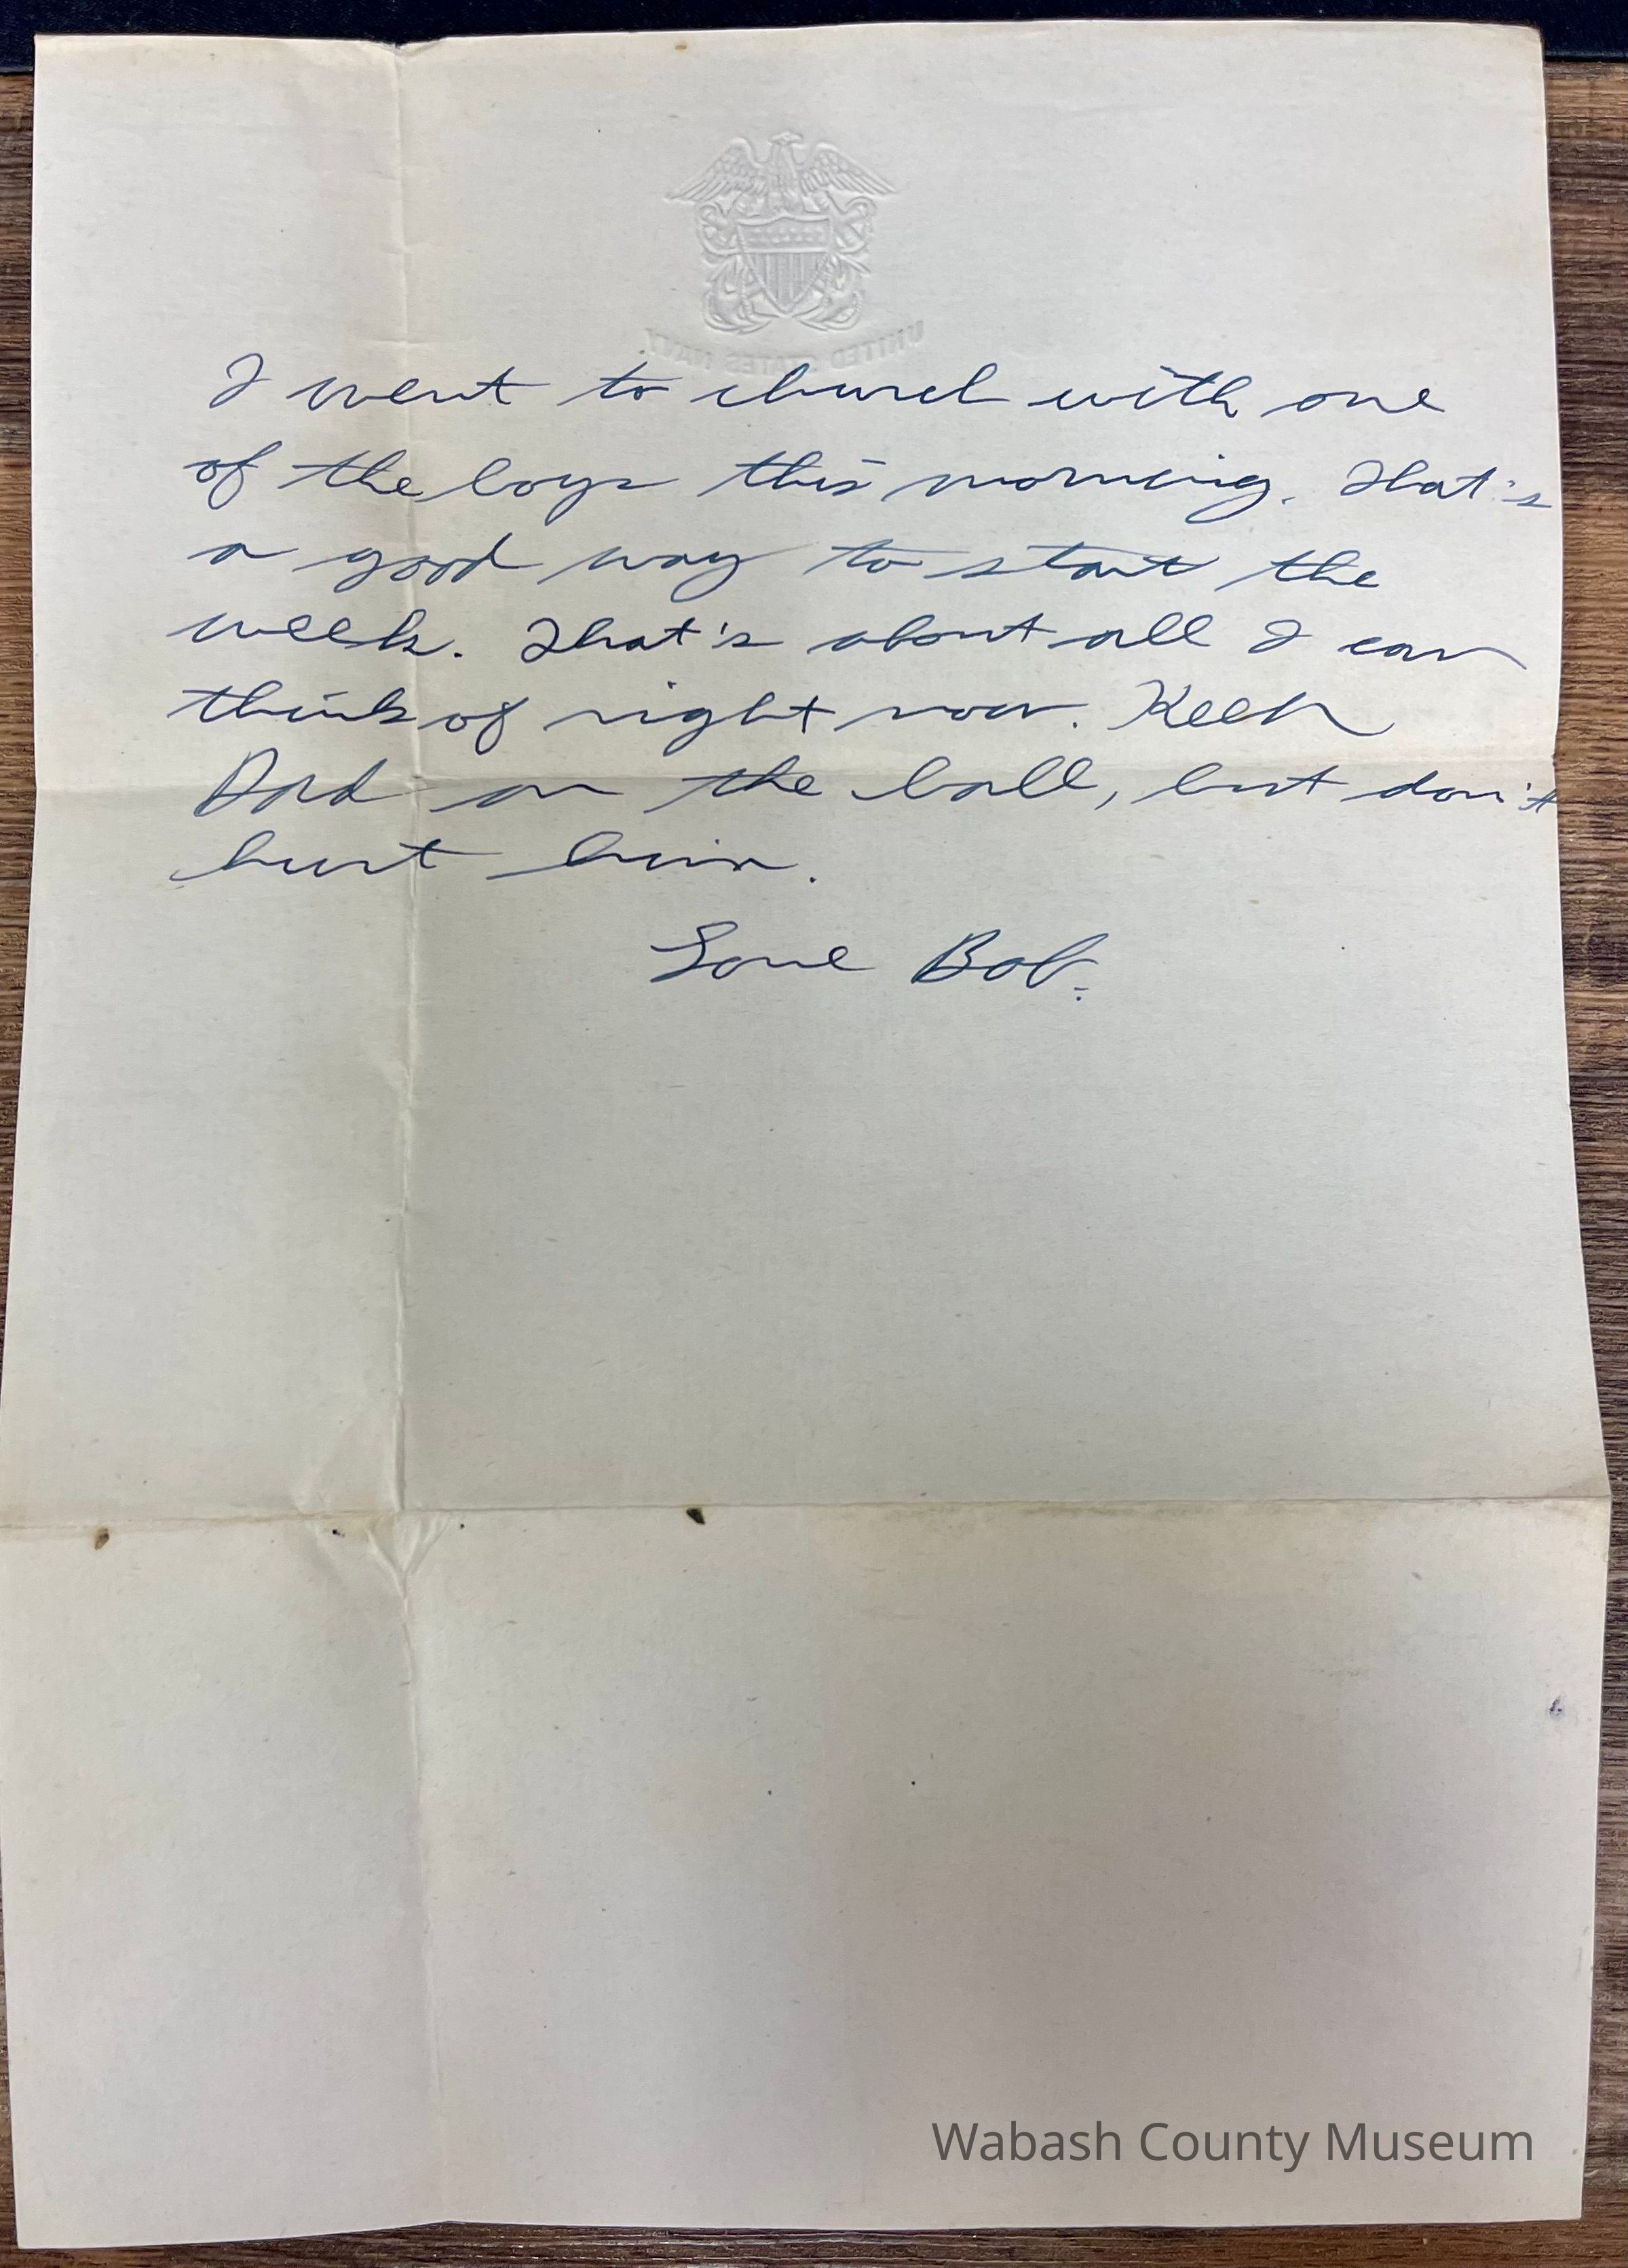 UNITED STATES NAVY
I went to church with one
of the boys this morning. That's
a good way to start the
week. That's about all I can
think of right now. Keep
Dad on the ball, but don't
hurt him.
Love Bob.
Wabash County Museum